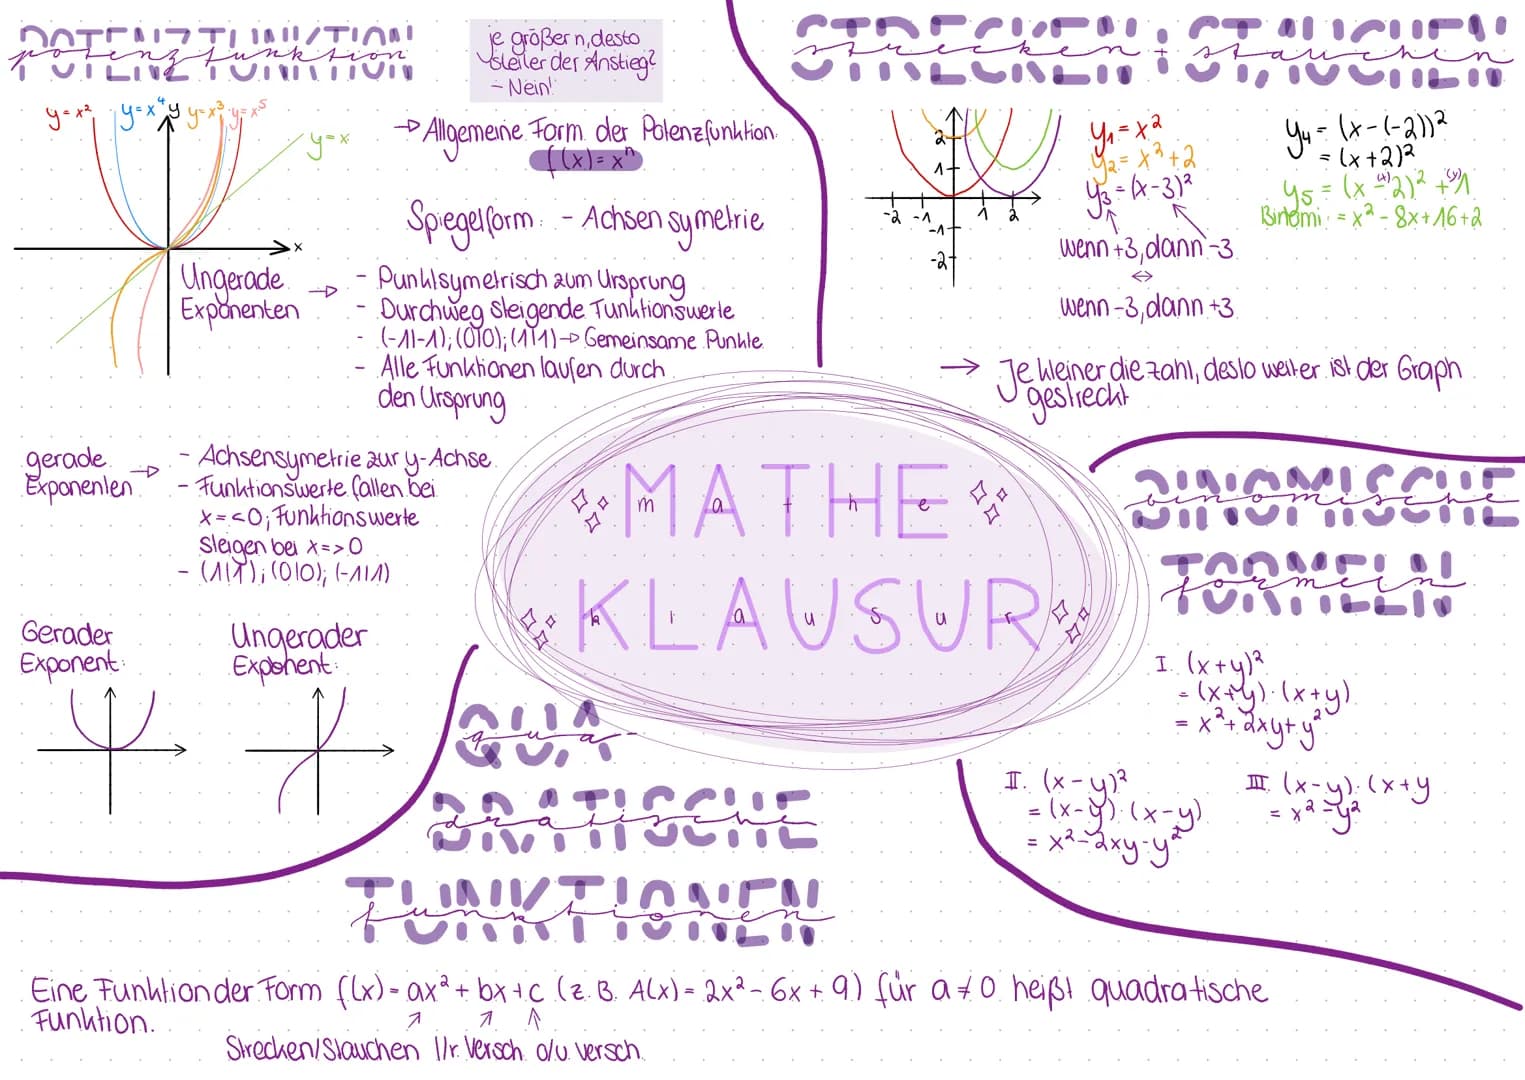 POTENZFUNKTION
potenzfunktion
je größer n, desto
steiler der Anstieg?
- Nein!
y=x²
y=x⁴
y
y=x³
y=x⁵
y=x
x
→ Allgemeine Form der Potenzfunktion:
f(x)=xⁿ
Spiegelform: - Achsensymetrie
Ungerade
Exponenten →
- Punktsymetrisch zum Ursprung
- Durchweg steigende Funktionswerte
- (-1|-1); (0|0); (1|1) → Gemeinsame Punkte
- Alle Funktionen laufen durch
den Ursprung
gerade
Exponenten →
- Achsensymetrie zur y-Achse
- Funktionswerte fallen bei
x=<0; Funktionswerte
steigen bei x=>0
- (1|1); (0|0); (-1|1)
Gerader
Exponent:
Ungerader
Exponent:
STRECKEN + STAUCHEN
strecken + stauchen
2
1
-2 -1 1 2
-1
-2
y₁ = x²
y₂ = x² + 2
y₃ = (x-3)²
wenn +3, dann -3
⇔
wenn -3, dann +3
y₄ = (x-(-2))²
= (x+2)²
(x) (y)
y₅ = (x-2)² + 1
Binomi: = x² - 8x + 16 + 2
→ Je kleiner die Zahl, desto weiter ist der Graph
gestreckt
MATHE
mathe
KLAUSUR
klausur
BINOMISCHE
binomische
FORMELN
formeln
I. (x+y)²
= (x+y) · (x+y)
= x² + 2xy + y²
II. (x-y)²
= (x-y) · (x-y)
= x² - 2xy - y²
III. (x-y) · (x+y
= x² - y²
QUA
qua-
DRATISCHE
dratische
FUNKTIONEN
funktionen
Eine Funktion der Form f(x) = ax² + bx + c (z.B. A(x) = 2x² - 6x + 9) für a ≠ 0 heißt quadratische
Funktion.
Strecken/Stauchen l/r. Versch. o/u. versch.